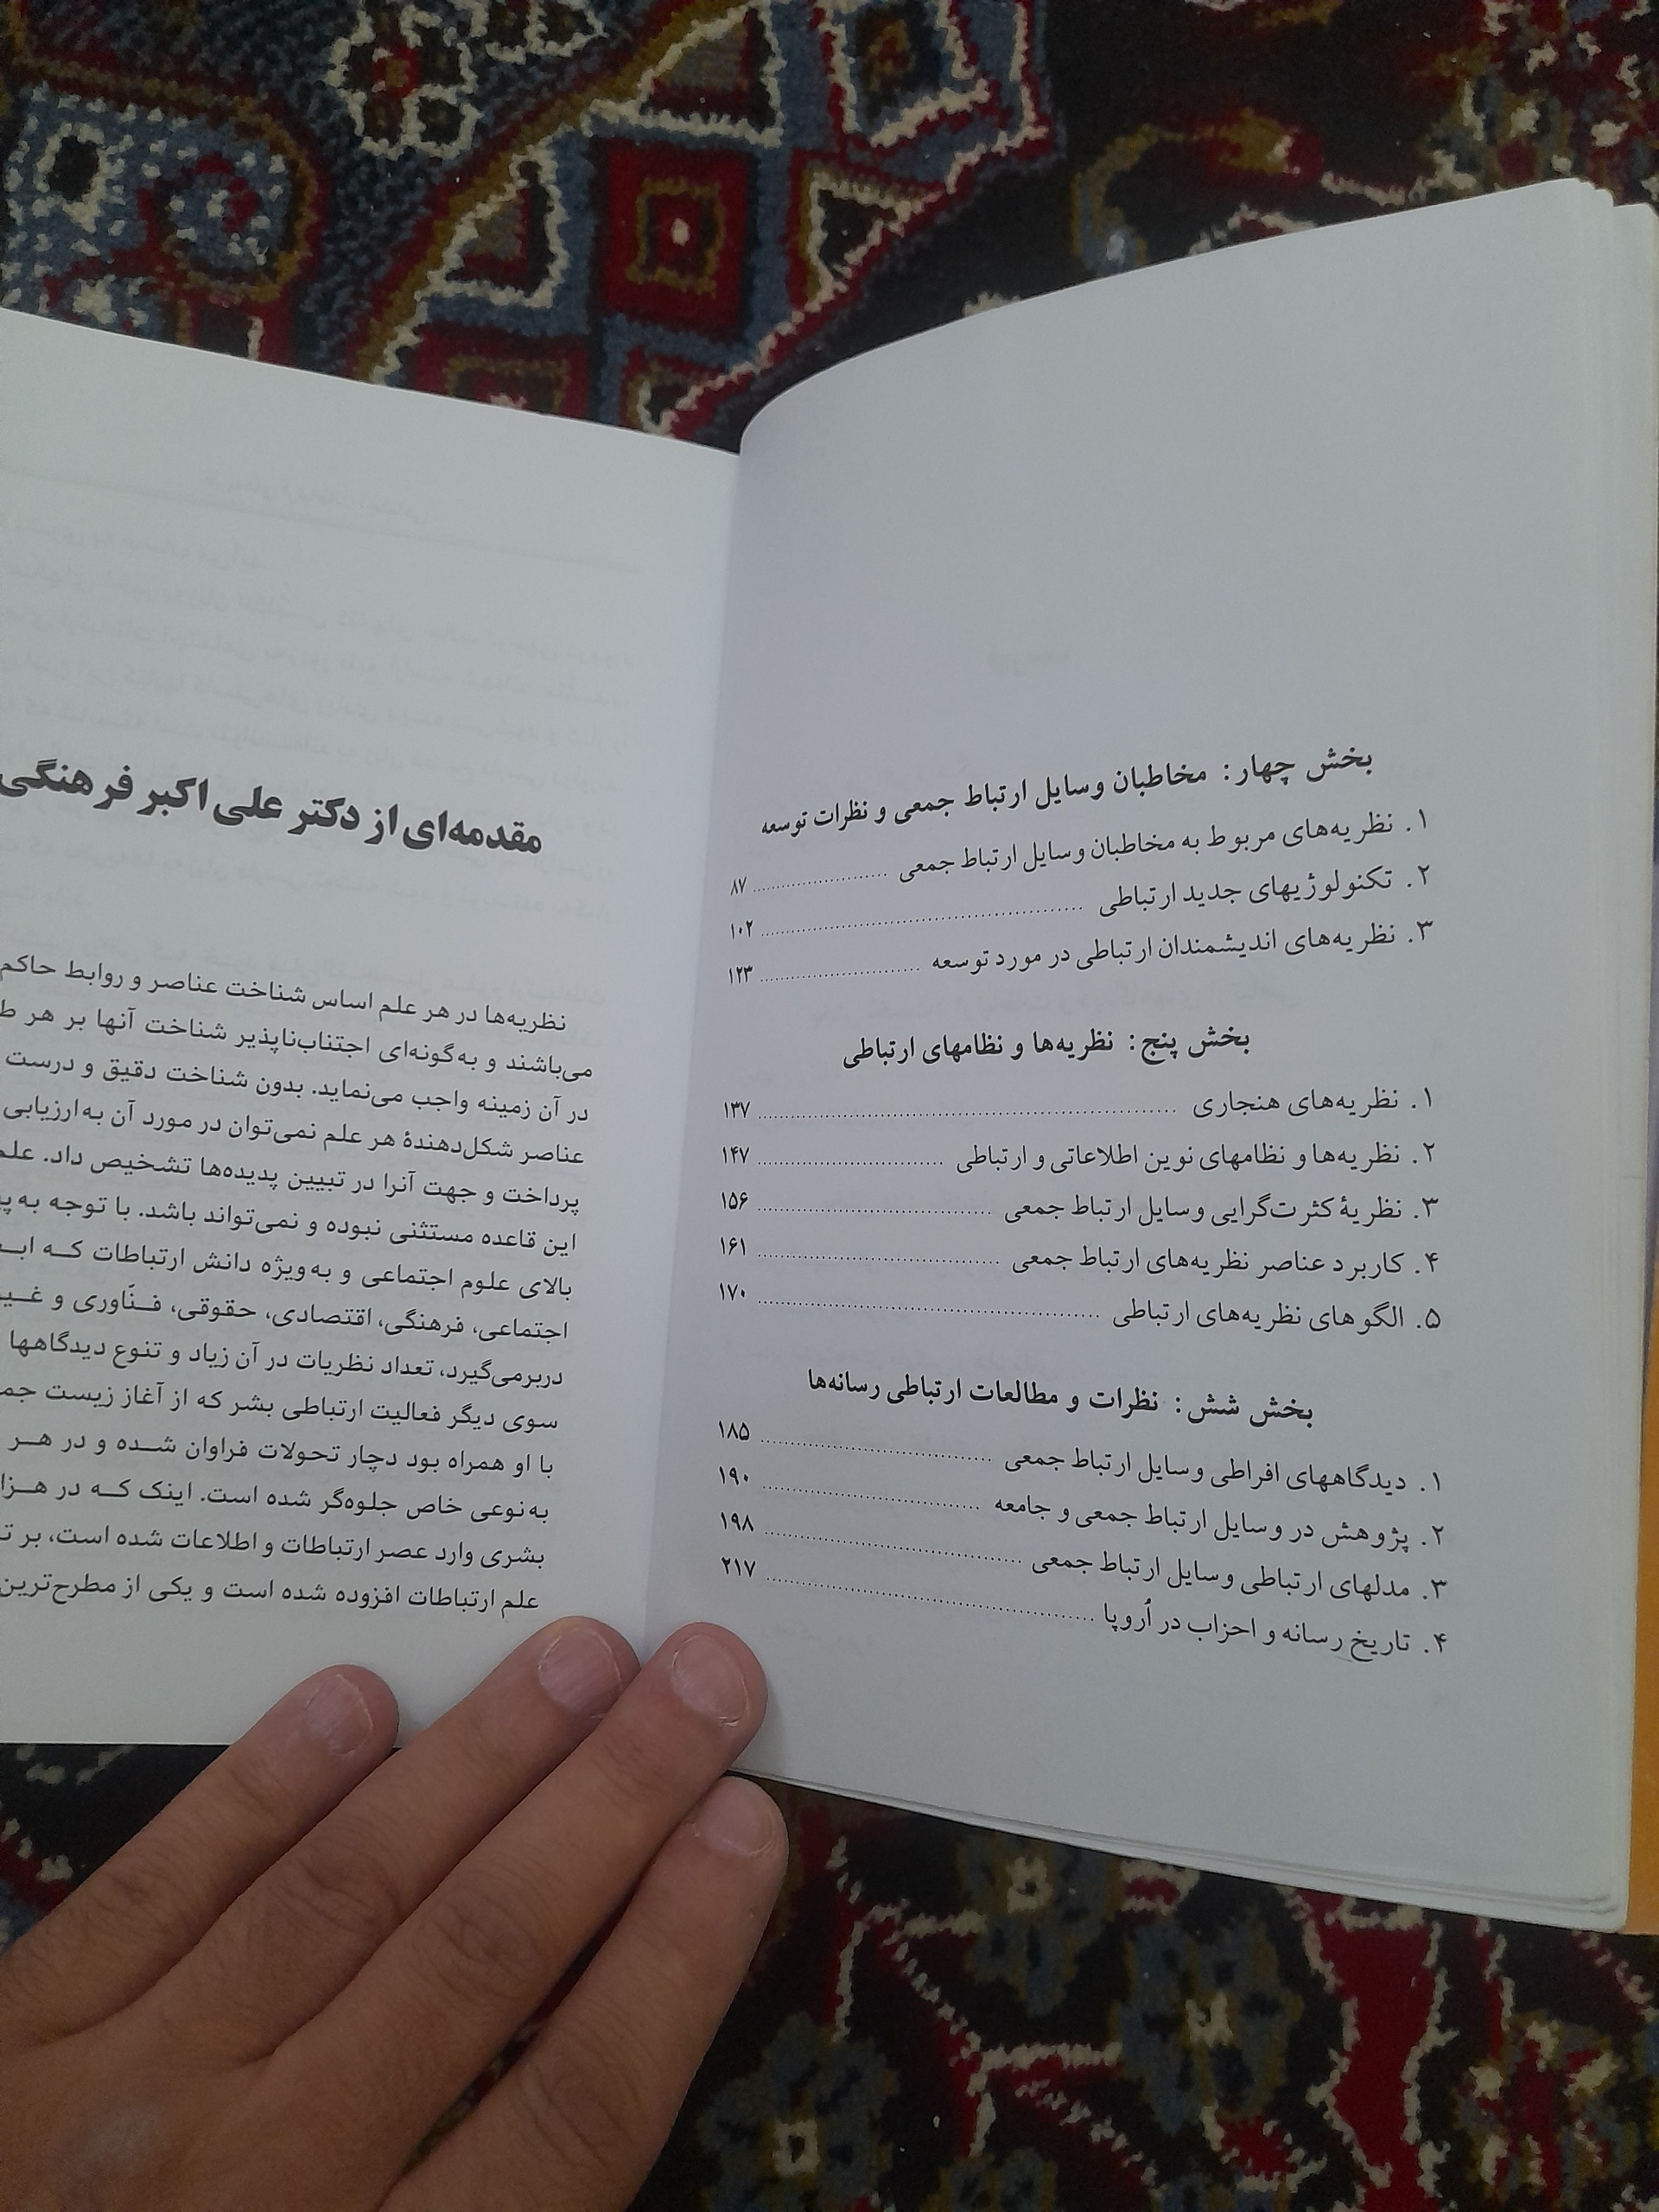 بخش چهار: مخاطبان وسایل ارتباط جمعی و نظرات توسعه
۱. نظریه‌های مربوط به مخاطبان وسایل ارتباط جمعی ........................ ۸۷
۲. تکنولوژیهای جدید ارتباطی ........................ ۱۰۲
۳. نظریه‌های اندیشمندان ارتباطی در مورد توسعه ........................ ۱۲۳
بخش پنج: نظریه‌ها و نظامهای ارتباطی
۱. نظریه‌های هنجاری ........................ ۱۳۷
۲. نظریه‌ها و نظامهای نوین اطلاعاتی و ارتباطی ........................ ۱۴۷
۳. نظریهٔ کثرت‌گرایی وسایل ارتباط جمعی ........................ ۱۵۶
۴. کاربرد عناصر نظریه‌های ارتباط جمعی ........................ ۱۶۱
۵. الگوهای نظریه‌های ارتباطی ........................ ۱۷۰
بخش شش: نظرات و مطالعات ارتباطی رسانه‌ها
۱. دیدگاههای افراطی وسایل ارتباط جمعی ........................ ۱۸۵
۲. پژوهش در وسایل ارتباط جمعی و جامعه ........................ ۱۹۰
۳. مدلهای ارتباطی وسایل ارتباط جمعی ........................ ۱۹۸
۴. تاریخ رسانه و احزاب در اُروپا ........................ ۲۱۷
مقدمه‌ای از دکتر علی اکبر فرهنگی
نظریه‌ها در هر علم اساس شناخت عناصر و روابط حاکم
می‌باشند و به‌گونه‌ای اجتناب‌ناپذیر شناخت آنها بر هر
در آن زمینه واجب می‌نماید. بدون شناخت دقیق و درست
عناصر شکل‌دهندهٔ هر علم نمی‌توان در مورد آن به‌ارزیابی
پرداخت و جهت آنرا در تبیین پدیده‌ها تشخیص داد.
این قاعده مستثنی نبوده و نمی‌تواند باشد. با توجه به
بالای علوم اجتماعی و به‌ویژه دانش ارتباطات که
اجتماعی، فرهنگی، اقتصادی، حقوقی، فنّاوری و
دربرمی‌گیرد، تعداد نظریات در آن زیاد و تنوع دیدگاهها
سوی دیگر فعالیت ارتباطی بشر که از آغاز زیست
با او همراه بود دچار تحولات فراوان شده و در هر
به‌نوعی خاص جلوه‌گر شده است. اینک که در
بشری وارد عصر ارتباطات و اطلاعات شده است، بر
علم ارتباطات افزوده شده است و یکی از مطرح‌ترین